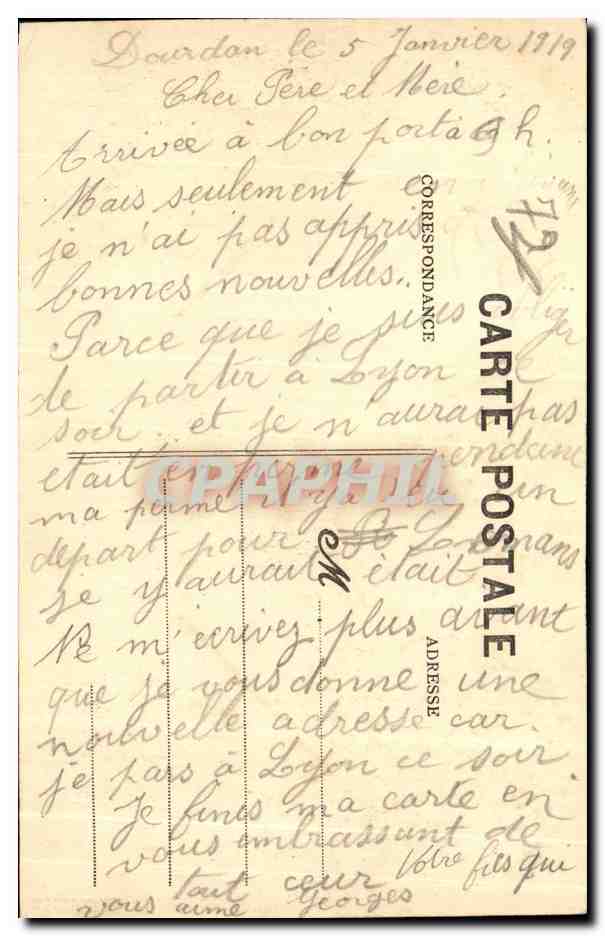 Dourdan le 5 Janvier 1919
Cher Père et Mère.
Arrivée à bon port à 9 h.
Mais seulement en
je n'ai pas appris
bonnes nouvelles..
Parce que je suis obliger
de partir à Lyon ce
soir et je n'aurai pas
était en perme pendant
ma perme il y a un
depart pour Le mans
je y aurait était
Ne m'écrivez plus avant
que je vous donne une
nouvelle adresse car.
je pars à Lyon ce soir
Je finis ma carte en
vous embrassant de
tout cœur Votre fils qui
vous aime Georges
72
CARTE POSTALE
CORRESPONDANCE
ADRESSE
M
CPAPHIL